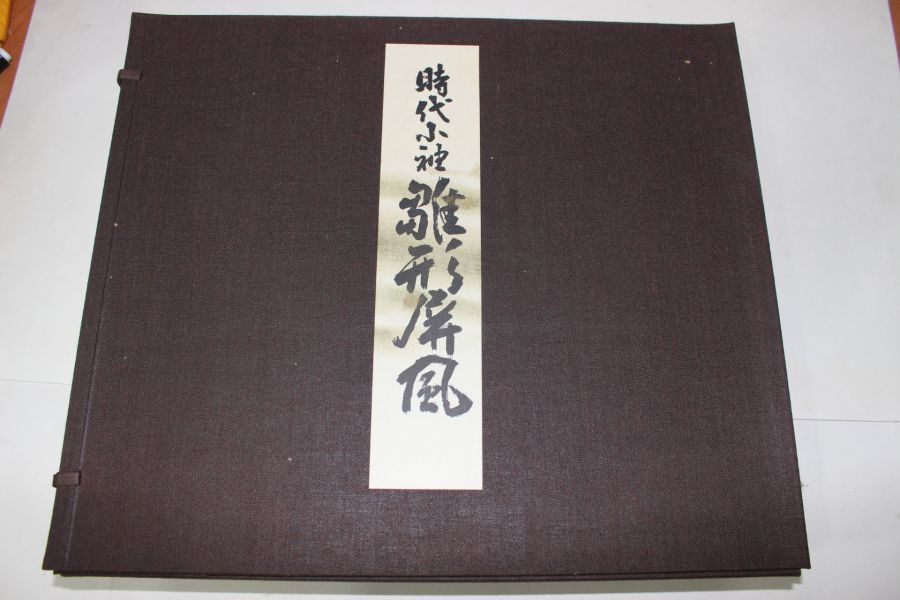 時代小袖雛形屏風